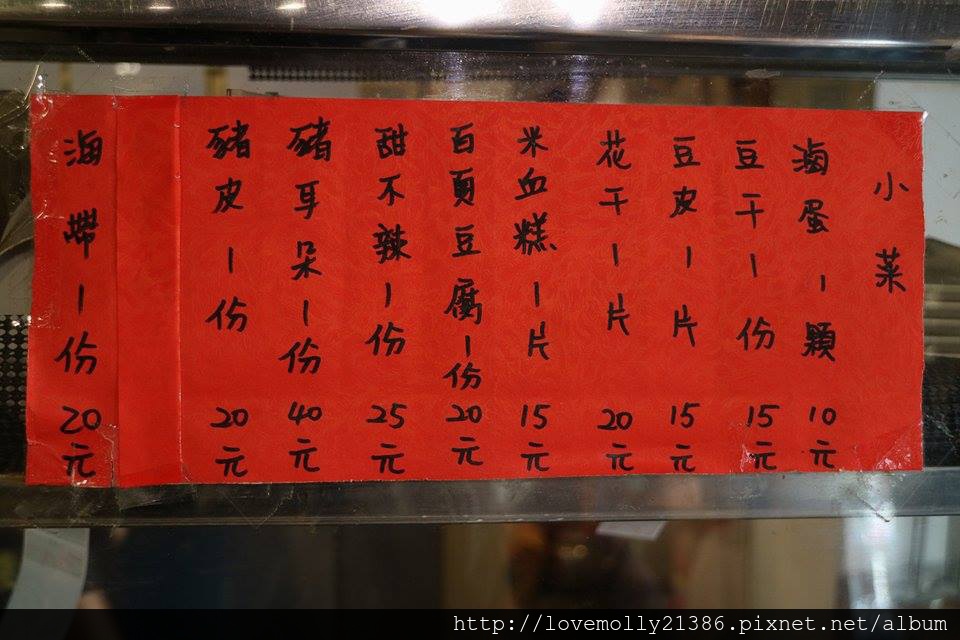 小菜
滷蛋一顆10元
豆干一份15元
豆皮一片15元
花干一片20元
米血糕一片15元
百頁豆腐一份20元
甜不辣一份25元
豬耳朵一份40元
豬皮一份20元
海帶一份20元
http://lovemolly21386.pixnet.net/album